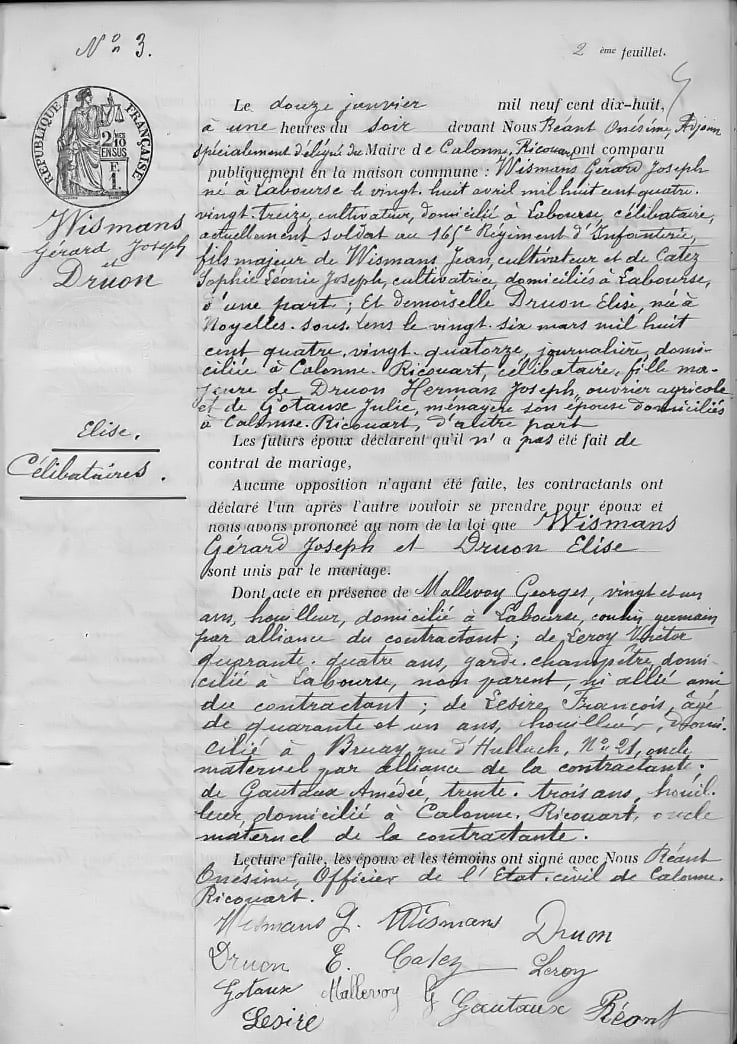 N° 3.
2 ème feuillet.
5
RÉPUBLIQUE FRANÇAISE
2/10 EN SUS
F. 1.
Wismans
Gérard Joseph
et
Druon
Elise.
Célibataires.
Le douze janvier mil neuf cent dix-huit,
à une heures du soir devant Nous Réant Onésime, Adjoin
spécialement délégué du Maire de Calonne. Ricouart ont comparu
publiquement en la maison commune : Wismans Gérard Joseph
né à Labourse le vingt. huit avril mil huit cent quatre.
vingt-treize, cultivateur, domicilié à Labourse, célibataire,
actuellement soldat au 165e Régiment d'Infanterie,
fils majeur de Wismans Jean, cultivateur et de Catez
Sophie Léonie Joseph, cultivatrice, domiciliés à Labourse,
d'une part ; Et demoiselle Druon Elise, née à
Noyelles. sous. Lens le vingt. six mars mil huit
cent quatre. vingt. quatorze, journalière, domi-
ciliée à Calonne. Ricouart, célibataire, fille ma-
jeure de Druon Herman Joseph, ouvrier agricole
et de Gotaux Julie, ménagère son épouse domiciliés
à Calonne. Ricouart, d'autre part
Les futurs époux déclarent qu'il n'a pas été fait de
contrat de mariage,
Aucune opposition n'ayant été faite, les contractants ont
déclaré l'un après l'autre vouloir se prendre pour époux et
nous avons prononcé au nom de la loi que Wismans
Gérard Joseph et Druon Elise
sont unis par le mariage.
Dont acte en présence de Mallevoy Georges, vingt et un
ans, houilleur, domicilié à Labourse, cousin germain
par alliance du contractant ; de Leroy Victor
quarante. quatre ans, garde. champêtre, domi-
cilié à Labourse, non parent, ni allié ami
du contractant ; de Lesire François, âgé
de quarante et un ans, houilleur, domi-
cilié à Bruay, rue d'Hulluch, N° 21, oncle
maternel par alliance de la contractante.
de Gautaux Amédée, trente. trois ans, houil-
leur, domicilié à Calonne. Ricouart, oncle
maternel de la contractante.
Lecture faite, les époux et les témoins ont signé avec Nous Réant
Onésime, Officier de l'Etat. civil de Calonne.
Ricouart.
Wismans G. Wismans Druon
Druon E. Catez Leroy
Gotaux Mallevoy G Gautaux Réant
Lesire